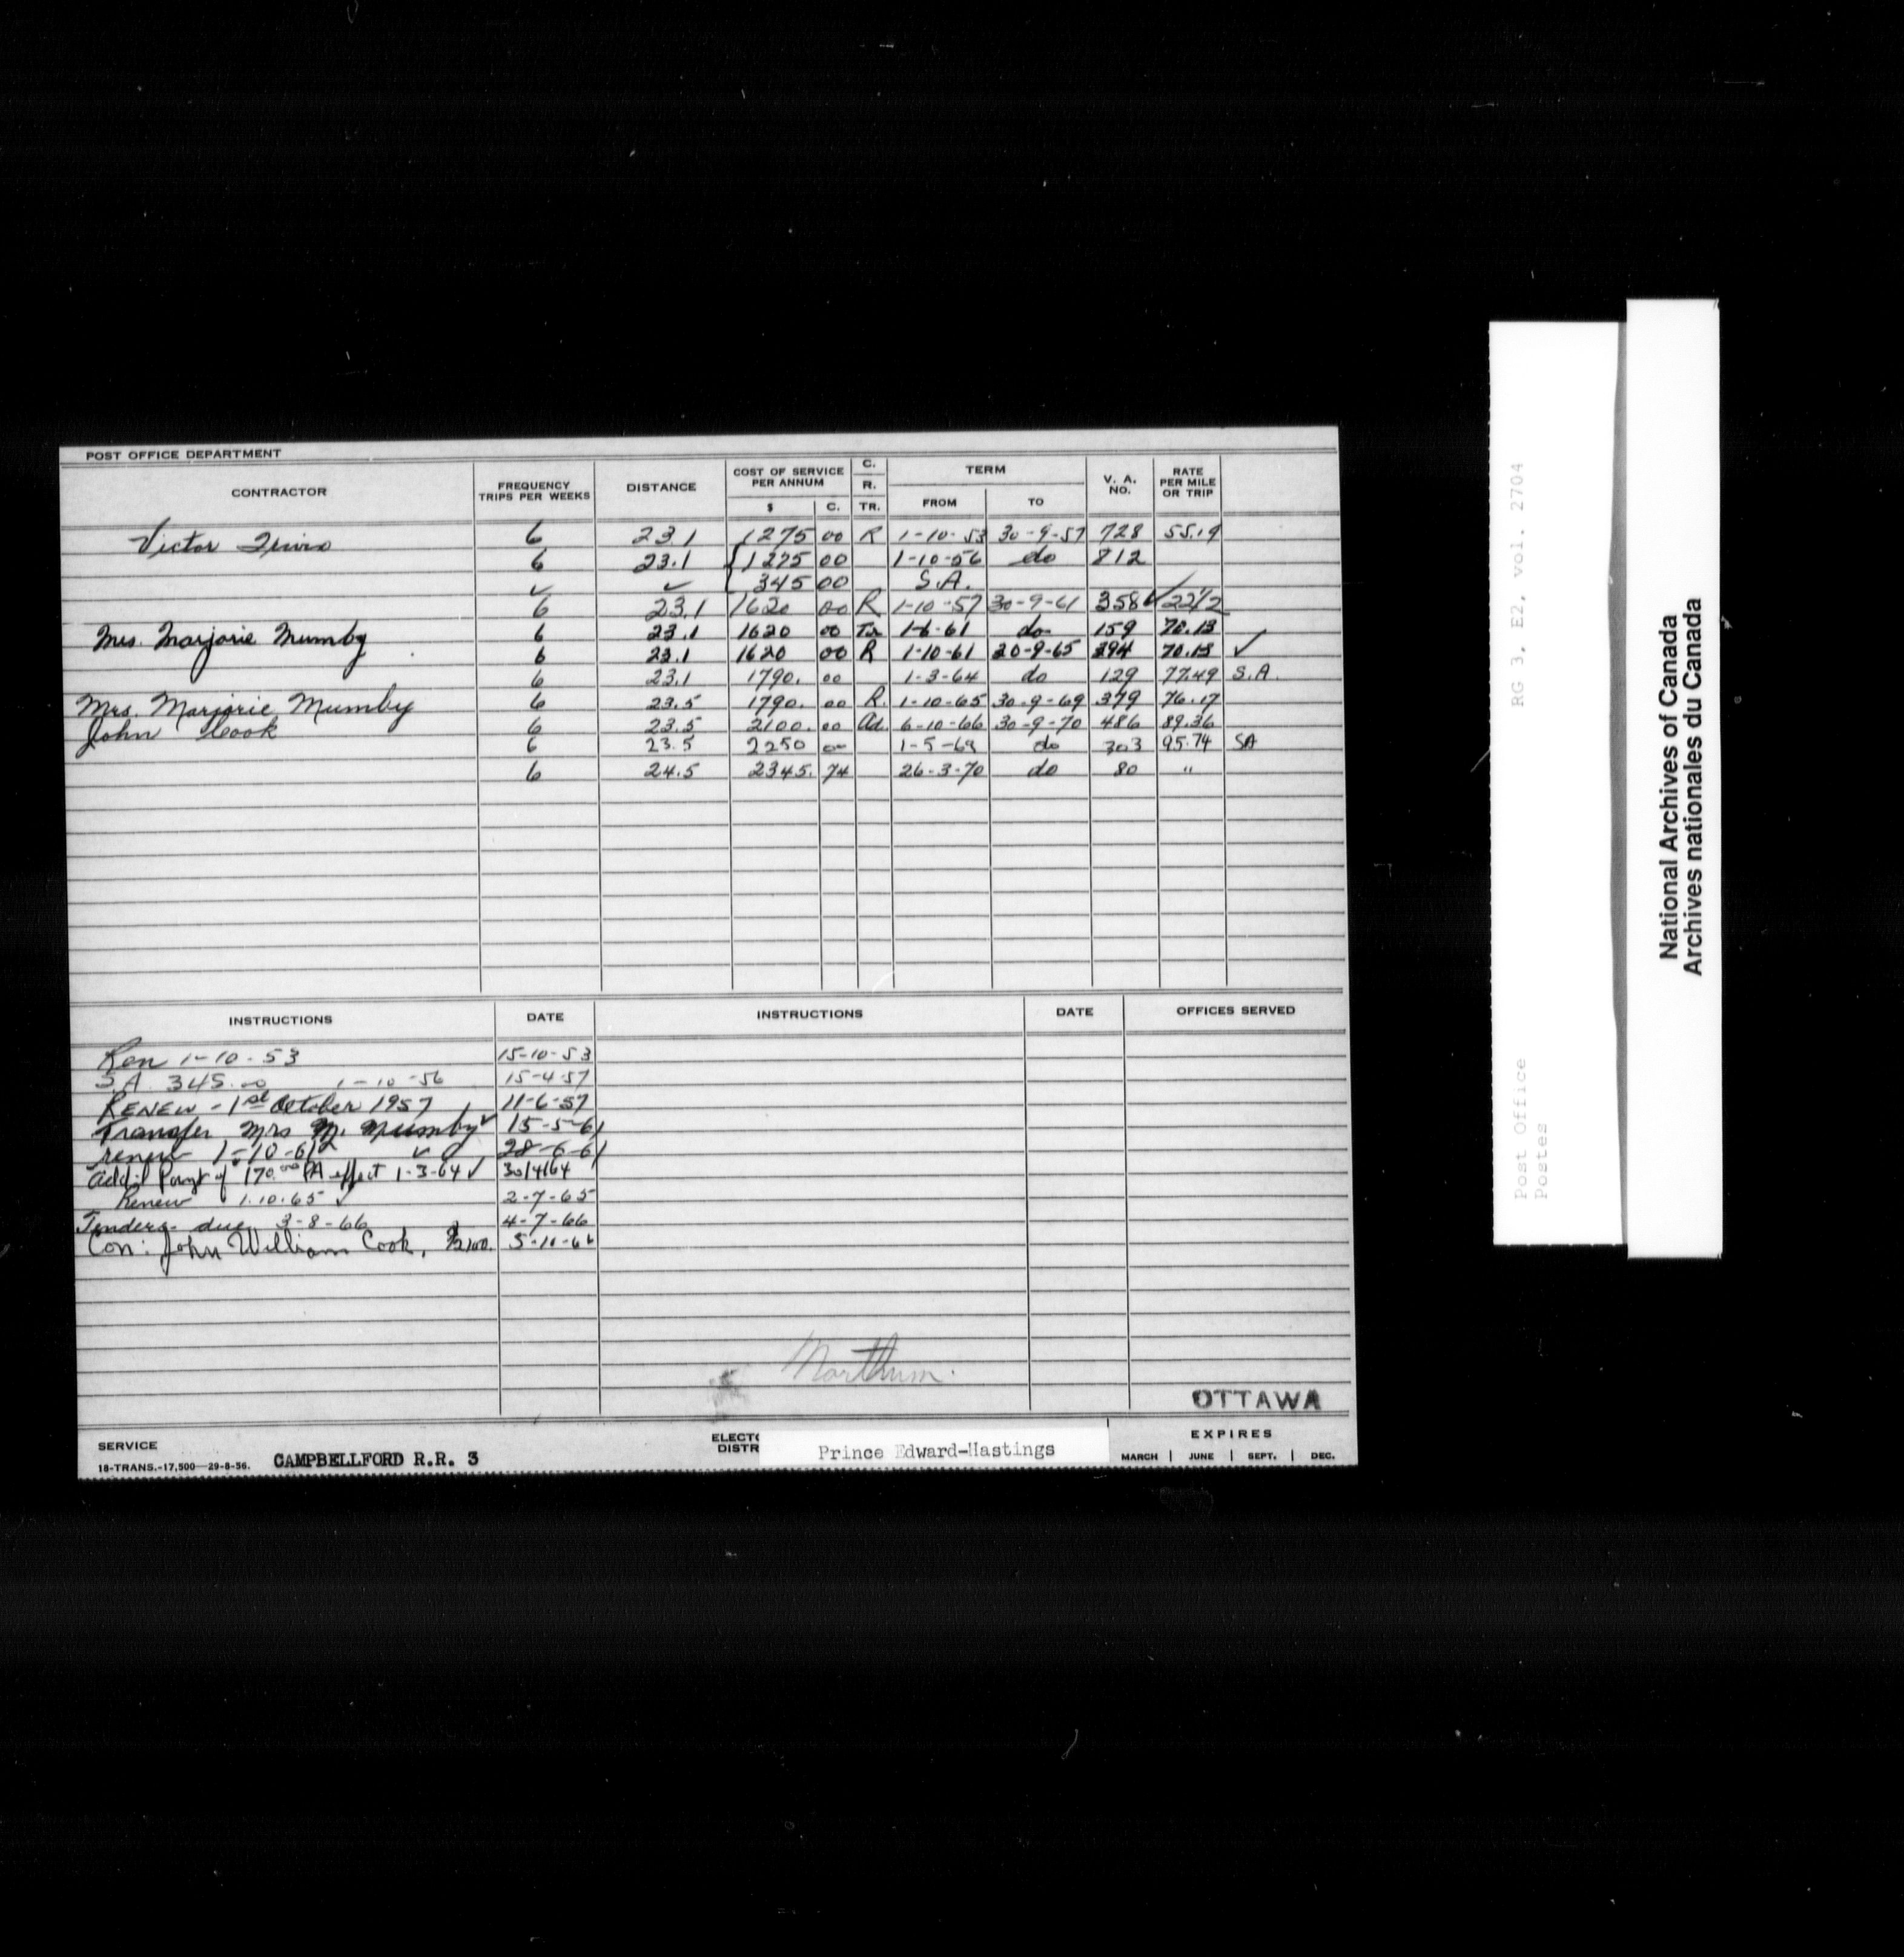 POST OFFICE DEPARTMENT
CONTRACTOR FREQUENCY TRIPS PER WEEKS DISTANCE COST OF SERVICE PER ANNUM $ C. C. R. TR. TERM FROM TO V. A. NO. RATE PER MILE OR TRIP
Victor 6 23.1 1275 00 R 1-10-53 30-9-57 728 55.19
6 23.1 1275 00 1-10-56 do 812
✓ ✓ 345 00 S.A.
6 23.1 1620 00 R 1-10-57 30-9-61 358 ✓ 22 1/2
Mrs. Marjorie Mumby 6 23.1 1620 00 Tr 1-6-61 do 159 70.13
6 23.1 1620 00 R 1-10-61 30-9-65 394 70.13 ✓
6 23.1 1790. 00 1-3-64 do 129 77.49 S.A.
Mrs. Marjorie Mumby 6 23.5 1790. 00 R. 1-10-65 30-9-69 379 76.17
John Cook 6 23.5 2100. 00 Ad. 6-10-66 30-9-70 486 89.36
6 23.5 2250 00 1-5-69 do 303 95.74 SA
6 24.5 2345. 74 26-3-70 do 80 "
INSTRUCTIONS DATE INSTRUCTIONS DATE OFFICES SERVED
Ren 1-10-53 15-10-53
S A 345.00 1-10-56 15-4-57
RENEW - 1st October 1957 11-6-57
Transfer Mrs M. Mumby ✓ 15-5-61
renew 1-10-61 ✓ 28-6-61
Add'l Paymt of 170.00 PA effect 1-3-64 ✓ 30/4/64
Renew 1.10.65 ✓ 2-7-65
Tenders due 3-8-66 4-7-66
Con: John William Cook, $2100. 5-10-66
Northum.
OTTAWA
SERVICE CAMPBELLFORD R.R. 3
18-TRANS.-17,500—29-8-56.
ELECTO
DISTR
Prince Edward-Hastings
EXPIRES
MARCH | JUNE | SEPT. | DEC.
RG 3, E2, vol. 2704
Post Office
Postes
National Archives of Canada
Archives nationales du Canada